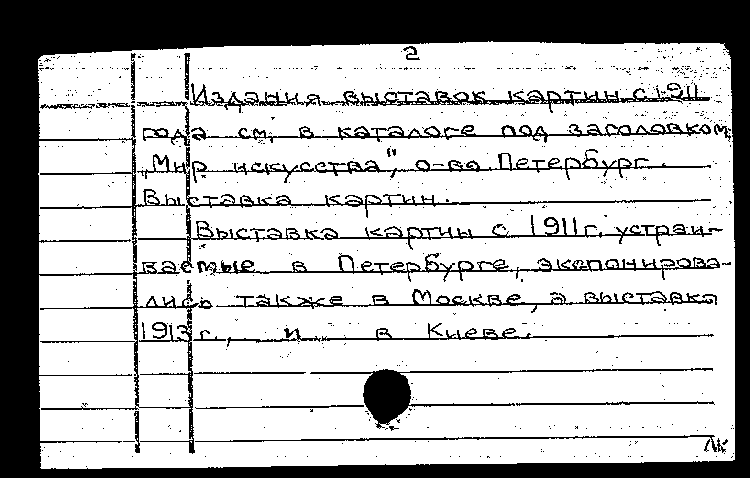 2
Издания выставок картин с 1911
года см. в каталоге под заголовком
„Мир искусства", о-во. Петербург.
Выставка картин.
Выставка картин с 1911 г. устраи-
ваемые в Петербурге, экспонирова-
лись также в Москве, а выставка
1913 г., и в Киеве.